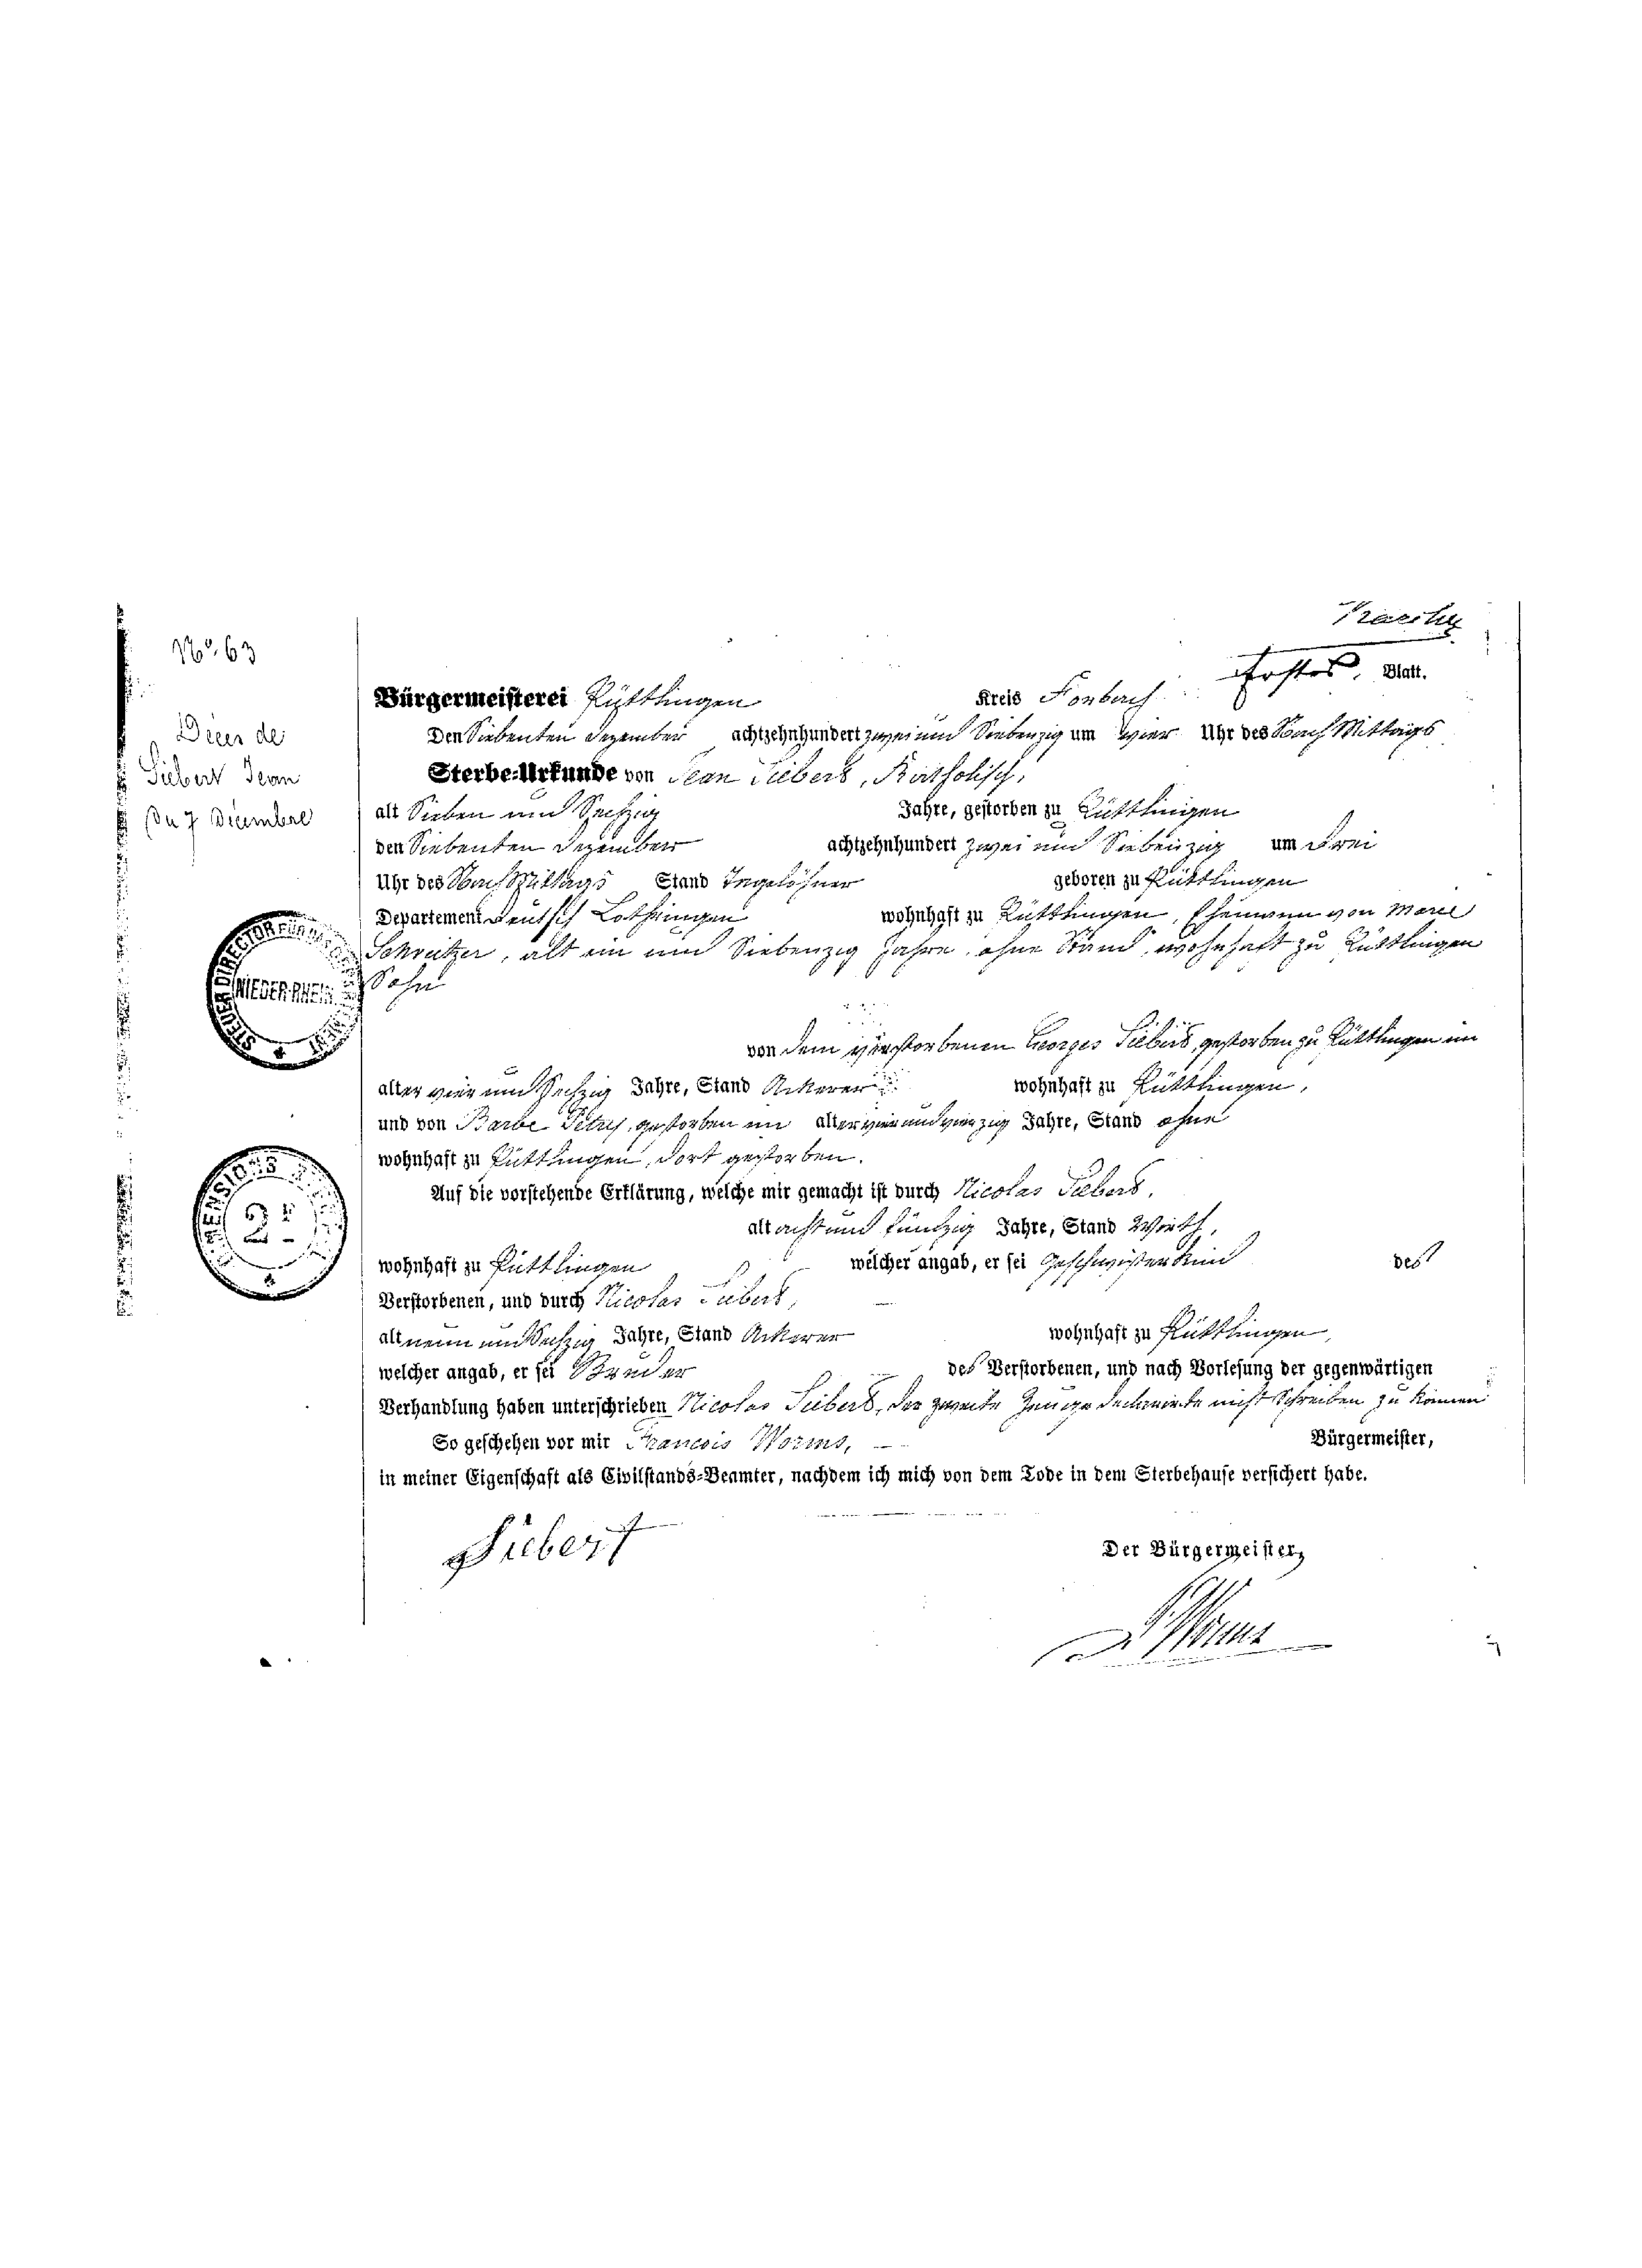 Nº 63
Décès de
Siebert Jean
Du 7 Décembre
Erstes Blatt.
Bürgermeisterei Püttlingen Kreis Forbach
Den Siebenten Dezember achtzehnhundert zwei und Siebenzig um vier Uhr des Nach Mittags
Sterbe-Urkunde von Jean Siebert, Katholisch,
alt Sieben und Sechzig Jahre, gestorben zu Püttlingen
den Siebenten Dezember achtzehnhundert zwei und Siebenzig um Drei
Uhr des Nach Mittags Stand Tagelöhner geboren zu Püttlingen
Departement Deutsch Lothringen wohnhaft zu Püttlingen, Ehemann von Marie
alt ein und Siebenzig Jahre, ohne Stand, wohnhaft zu Püttlingen
Sohn
von dem verstorbenen Georges Siebert, gestorben zu Püttlingen im
alter vier und Sechzig Jahre, Stand Ackerer wohnhaft zu Püttlingen,
und von Barbe Petry, gestorben im alter vier und vierzig Jahre, Stand ohne
wohnhaft zu Püttlingen, dort gestorben.
Auf die vorstehende Erklärung, welche mir gemacht ist durch Nicolas Siebert,
alt acht und fünfzig Jahre, Stand Wirth,
wohnhaft zu Püttlingen welcher angab, er sei Geschwisterkind des
Verstorbenen, und durch Nicolas Siebert,
alt neun und Sechzig Jahre, Stand Ackerer wohnhaft zu Püttlingen,
welcher angab, er sei Bruder des Verstorbenen, und nach Vorlesung der gegenwärtigen
Verhandlung haben unterschrieben Nicolas Siebert, der zweite Zeuge declarirte nicht Schreiben zu können
So geschehen vor mir Francois Worms, Bürgermeister,
in meiner Eigenschaft als Civilstands-Beamter, nachdem ich mich von dem Tode in dem Sterbehause versichert habe.
Siebert
Der Bürgermeister,
Worms
STEUER DIRECTOR FÜR
NIEDER-RHEIN
2